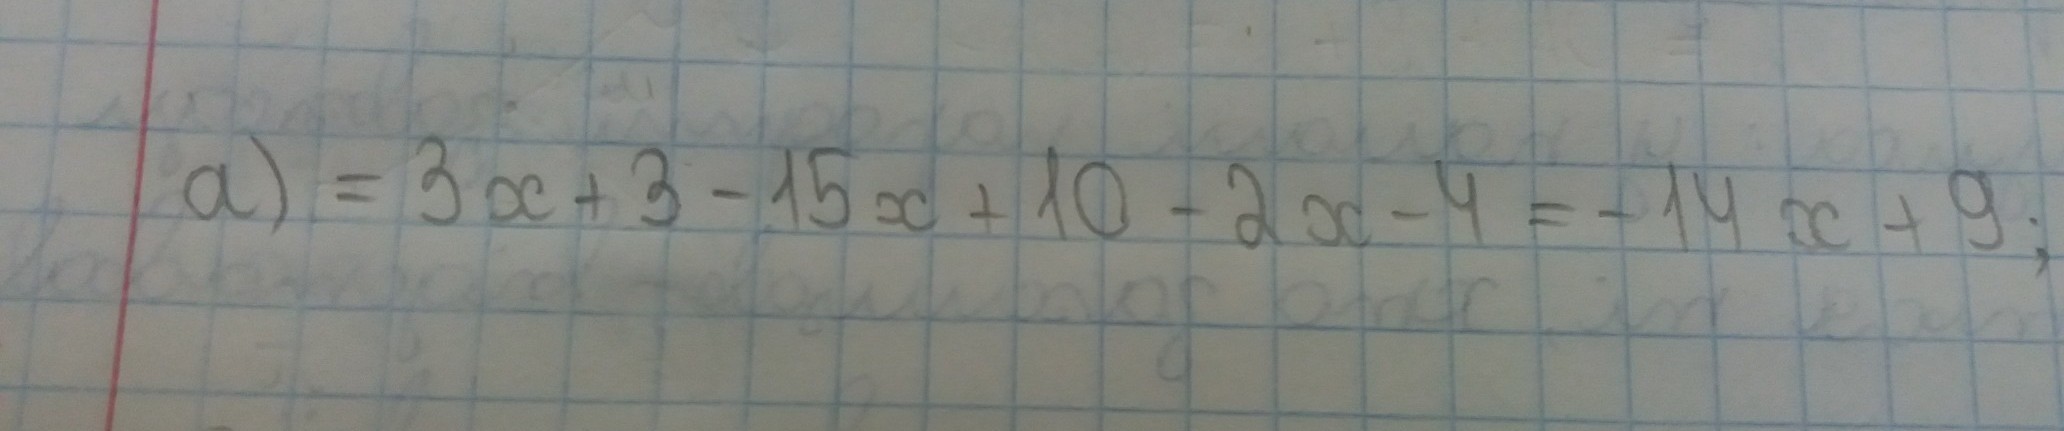 а) = 3x + 3 - 15x + 10 - 2x - 4 = -14x + 9;